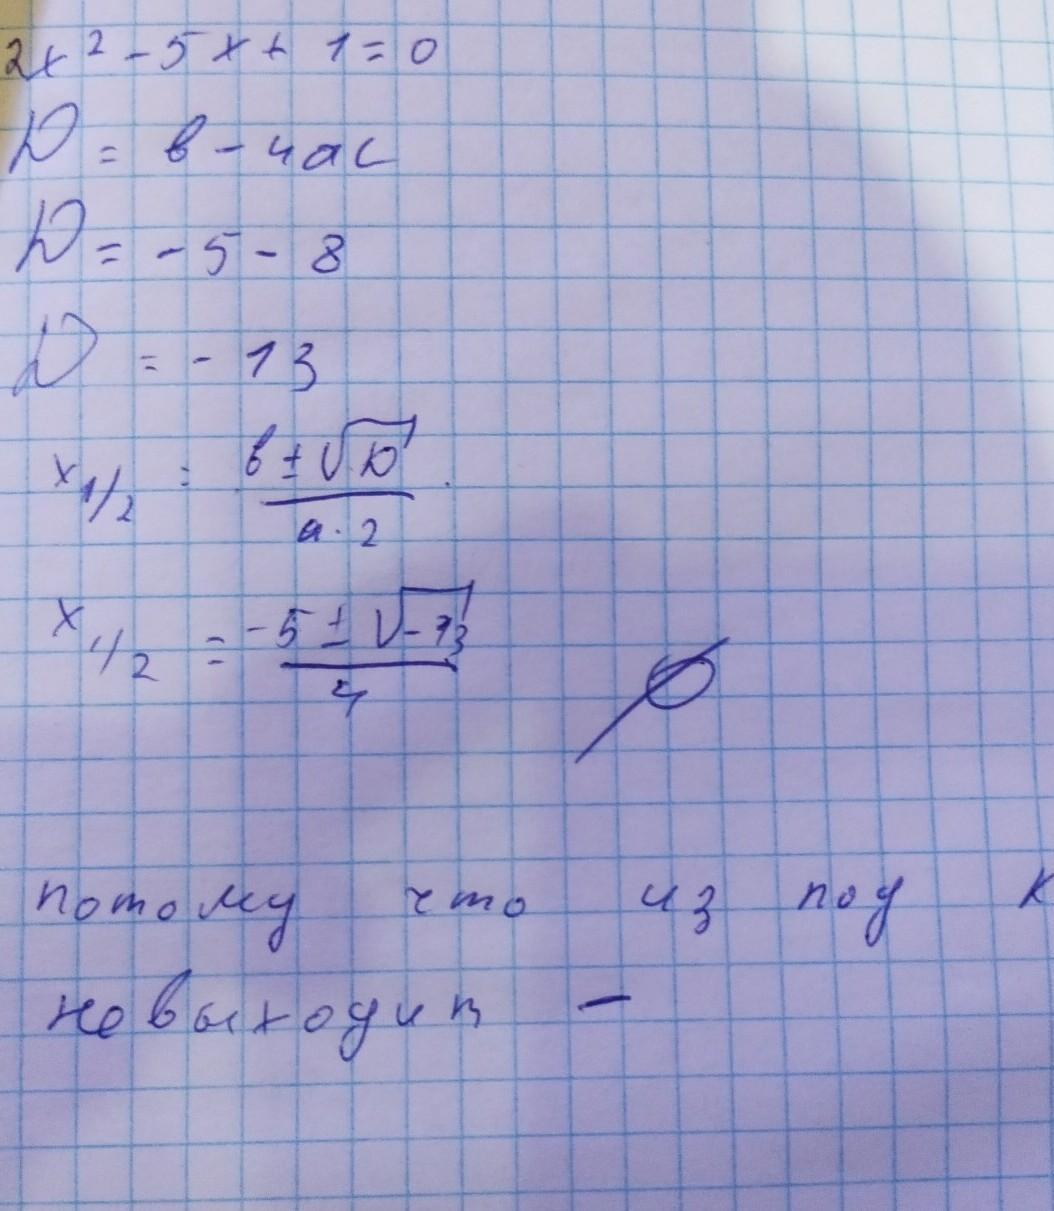 2x² - 5x + 1 = 0
D = в - 4ac
D = -5 - 8
D = -13
x1/2 = (в ± √D) / (a · 2)
x1/2 = (-5 ± √-13) / 4 ∅
потому что из под к
не выходит -